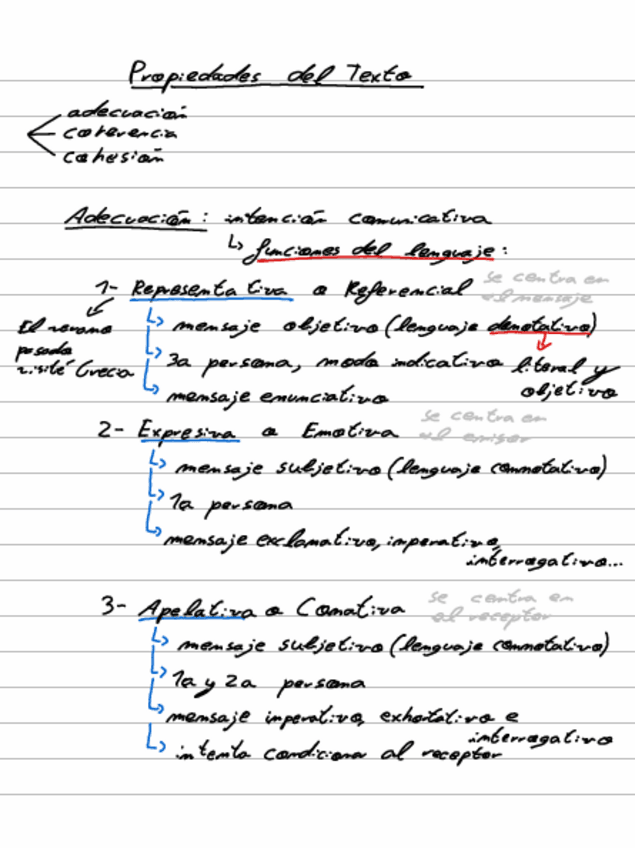 Propiedades del Texto
adecuación
coherencia
cohesión
Adecuación: intención comunicativa
↳ funciones del lenguaje:
1- Representativa o Referencial se centra en el mensaje
El verano pasado visité Grecia
↳ mensaje objetivo (lenguaje denotativo)
↳ 3a persona, modo indicativo
literal y objetivo
↳ mensaje enunciativo
2- Expresiva o Emotiva se centra en el emisor
↳ mensaje subjetivo (lenguaje connotativo)
↳ 1a persona
↳ mensaje exclamativo, imperativo,
interrogativo...
3- Apelativa o Conativa se centra en el receptor
↳ mensaje subjetivo (lenguaje connotativo)
↳ 1a y 2a persona
↳ mensaje imperativo, exhortativo e
interrogativo
↳ intenta condicionar al receptor